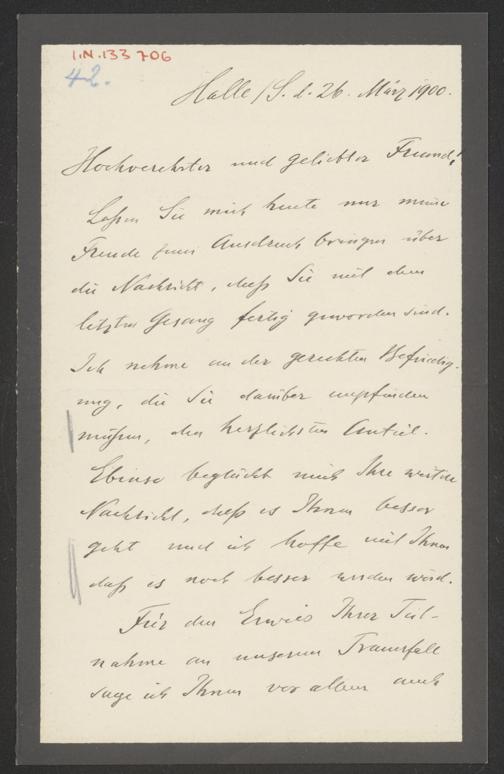 I.N. 133 706
42.
Halle/S. d. 26. März 1900.
Hochverehrter und geliebter Freund!
Laßen Sie mich heute nur meine
Freude zum Ausdruck bringen über
die Nachricht, daß Sie mit dem
letzten Gesang fertig geworden sind.
Ich nehme an der gerechten Befriedig-
ung, die Sie darüber empfinden
müßen, den herzlichsten Anteil.
Ebenso beglückt mich Ihre weitere
Nachricht, daß es Ihnen besser
geht und ich hoffe mit Ihnen
daß es noch besser werden wird.
Für den Erweis Ihrer Teil-
nahme an unserem Trauerfall
sage ich Ihnen vor allem auch